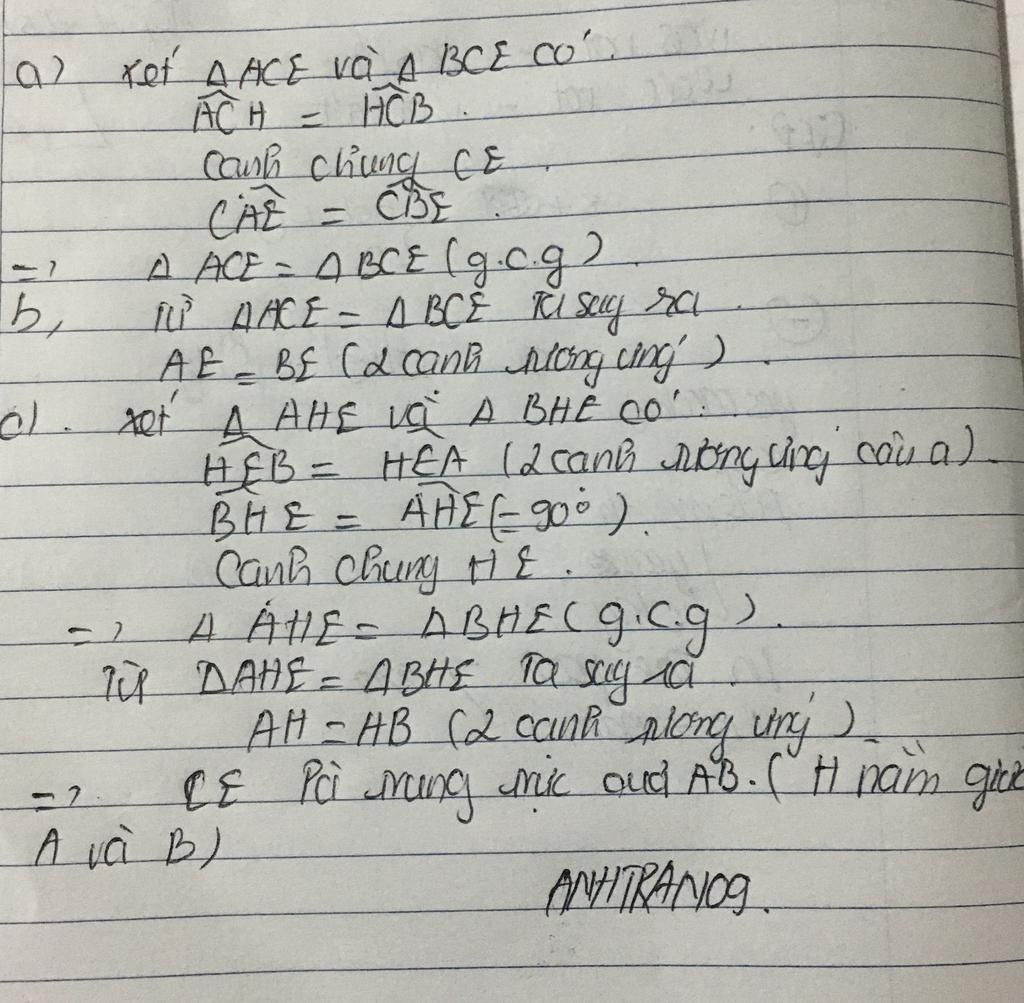 a) xét Δ ACE và Δ BCE có:
ACH = HCB.
cạnh chung CE.
CAE = CBE.
=> Δ ACE = Δ BCE (g.c.g)
b, Từ Δ ACE = Δ BCE Ta suy ra
AE = BE (2 cạnh tương ứng).
c). xét Δ AHE và Δ BHE có:
HEB = HEA (2 cạnh tương ứng câu a).
BHE = AHE (= 90°).
Cạnh chung HE.
=> Δ AHE = Δ BHE (g.c.g).
Từ ΔAHE = ΔBHE Ta suy ra
AH = HB (2 cạnh tương ứng)
=> CE là trung trực của AB. (H nằm giữa
A và B)
ANHTRAN09.